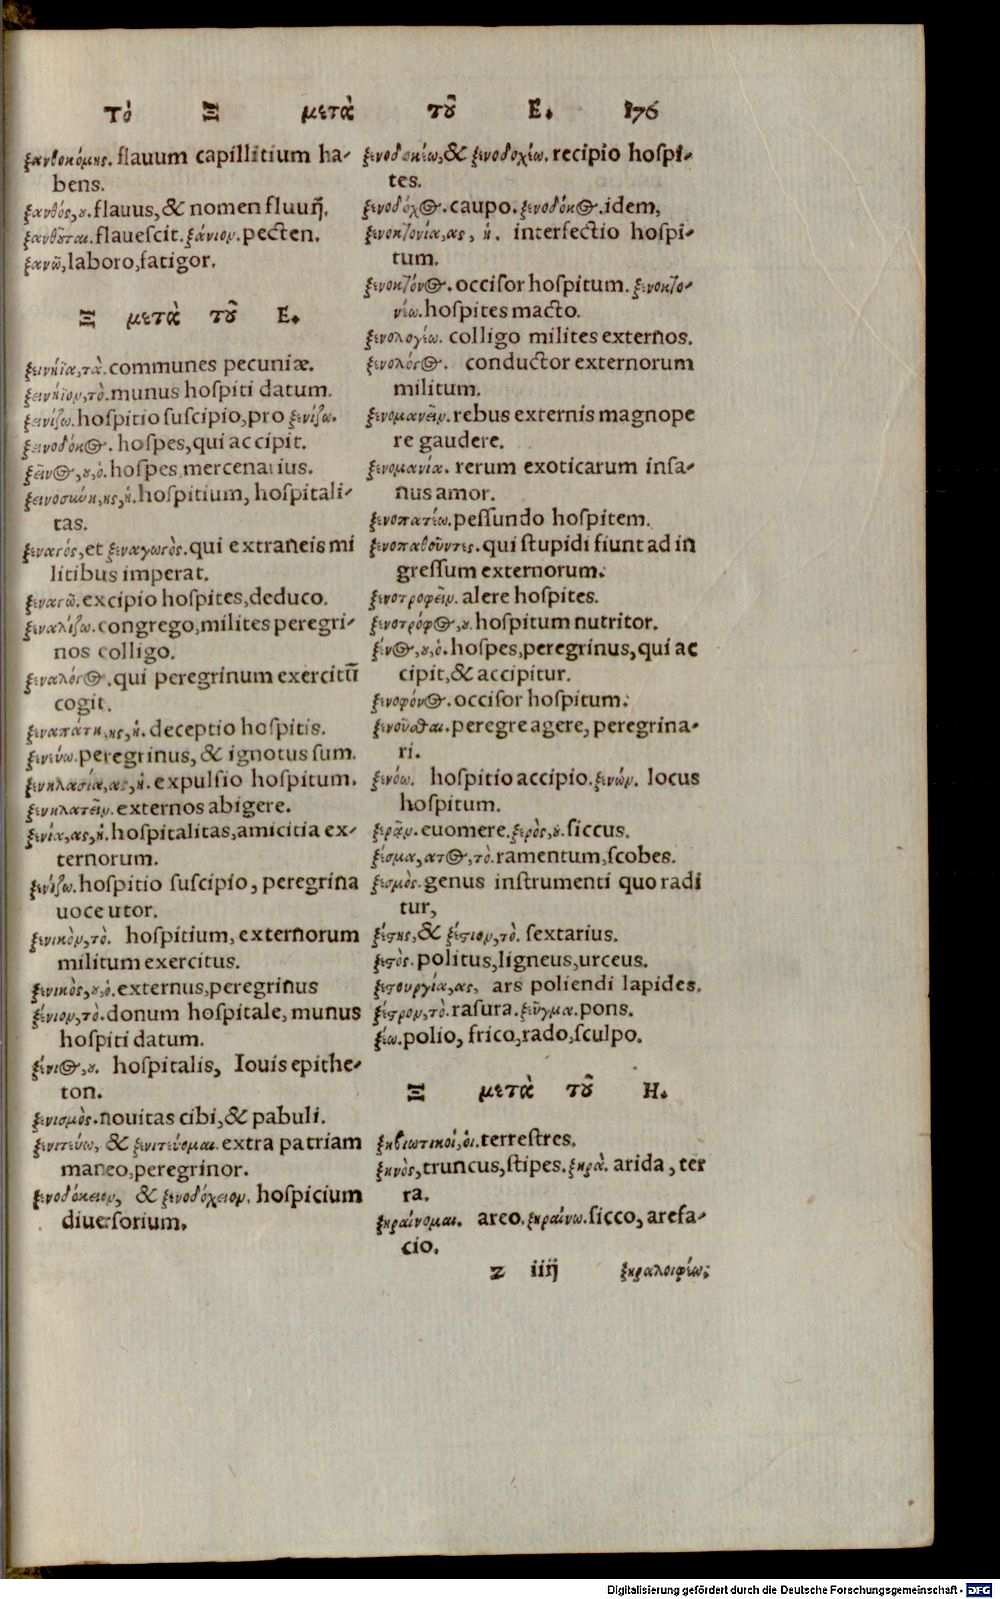 Τὸ Ξ μετὰ τοῦ Ε. 176
ξανθοκόμης. flauum capillitium ha-
bens.
ξανθός,ου. flauus, & nomen fluuij.
ξανθοῦται. flauescit. ξάνιον. pecten.
ξανῶ, laboro, fatigor.
Ξ μετὰ τοῦ Ε.
ξεινήϊα, τὰ. communes pecuniæ.
ξεινήϊον, τὸ. munus hospiti datum.
ξεινίζω. hospitio suscipio, pro ξενίζω.
ξεινοδόκος. hospes, qui accipit.
ξεῖνος,ου,ὁ. hospes mercenarius.
ξεινοσύνη,ης,ἡ. hospitium, hospitali-
tas.
ξεναγός, et ξεναγωγὸς. qui extraneis mi
litibus imperat.
ξεναγῶ. excipio hospites, deduco.
ξεναλίζω. congrego, milites peregri-
nos colligo.
ξεναλόγος. qui peregrinum exercitū
cogit.
ξεναπάτη,ης,ἡ. deceptio hospitis.
ξενεύω. peregrinus, & ignotus sum.
ξενηλασία,ας,ἡ. expulsio hospitum.
ξενηλατεῖν. externos abigere.
ξενία,ας,ἡ. hospitalitas, amicitia ex-
ternorum.
ξενίζω. hospitio suscipio, peregrina
uoce utor.
ξενικὸν, τὸ. hospitium, externorum
militum exercitus.
ξενικὸς,ου,ὁ. externus, peregrinus
ξένιον, τὸ. donum hospitale, munus
hospiti datum.
ξένιος,ου. hospitalis, Iouis epithe-
ton.
ξενισμὸς. nouitas cibi, & pabuli.
ξενιτεύω, & ξενιτεύομαι. extra patriam
maneo, peregrinor.
ξενοδόκειον, & ξενοδόχειον. hospicium
diuersorium.
ξενοδοκέω, & ξενοδοχέω. recipio hospi-
tes.
ξενοδόχος. caupo. ξενοδόκος. idem,
ξενοκτονία,ας, ἡ. interfectio hospi-
tum.
ξενοκτόνος. occisor hospitum. ξενοκτο-
νέω. hospites macto.
ξενολογέω. colligo milites externos.
ξενολόγος. conductor externorum
militum.
ξενομανεῖν. rebus externis magnope
re gaudere.
ξενομανία. rerum exoticarum insa-
nus amor.
ξενοπατέω. pessundo hospitem.
ξενοπαθοῦντες. qui stupidi fiunt ad in
gressum externorum.
ξενοτροφεῖν. alere hospites.
ξενοτρόφος,ου. hospitum nutritor.
ξένος,ου,ὁ. hospes, peregrinus, qui ac
cipit, & accipitur.
ξενοφόνος. occisor hospitum.
ξενοῦσθαι. peregre agere, peregrina-
ri.
ξενόω. hospitio accipio. ξενών. locus
hospitum.
ξερᾶν. euomere. ξερὸς,ου. siccus.
ξέσμα, ατος, τὸ. ramentum, scobes.
ξεσμὸς. genus instrumenti quo radi
tur,
ξέστης, & ξέστιον, τὸ. sextarius.
ξεστὸς. politus, ligneus, urceus.
ξεστουργία,ας, ars poliendi lapides.
ξέστρον, τὸ. rasura. ξεῦγμα. pons.
ξέω. polio, frico, rado, sculpo.
Ξ μετὰ τοῦ Η.
ξηβιωτικοί, οἱ. terrestres.
ξηνὸς, truncus, stipes. ξηρὰ. arida, ter
ra.
ξηραίνομαι. areo. ξηραίνω. sicco, arefa-
cio.
z iiij ξηραλοιφέω;
Digitalisierung gefördert durch die Deutsche Forschungsgemeinschaft - DFG